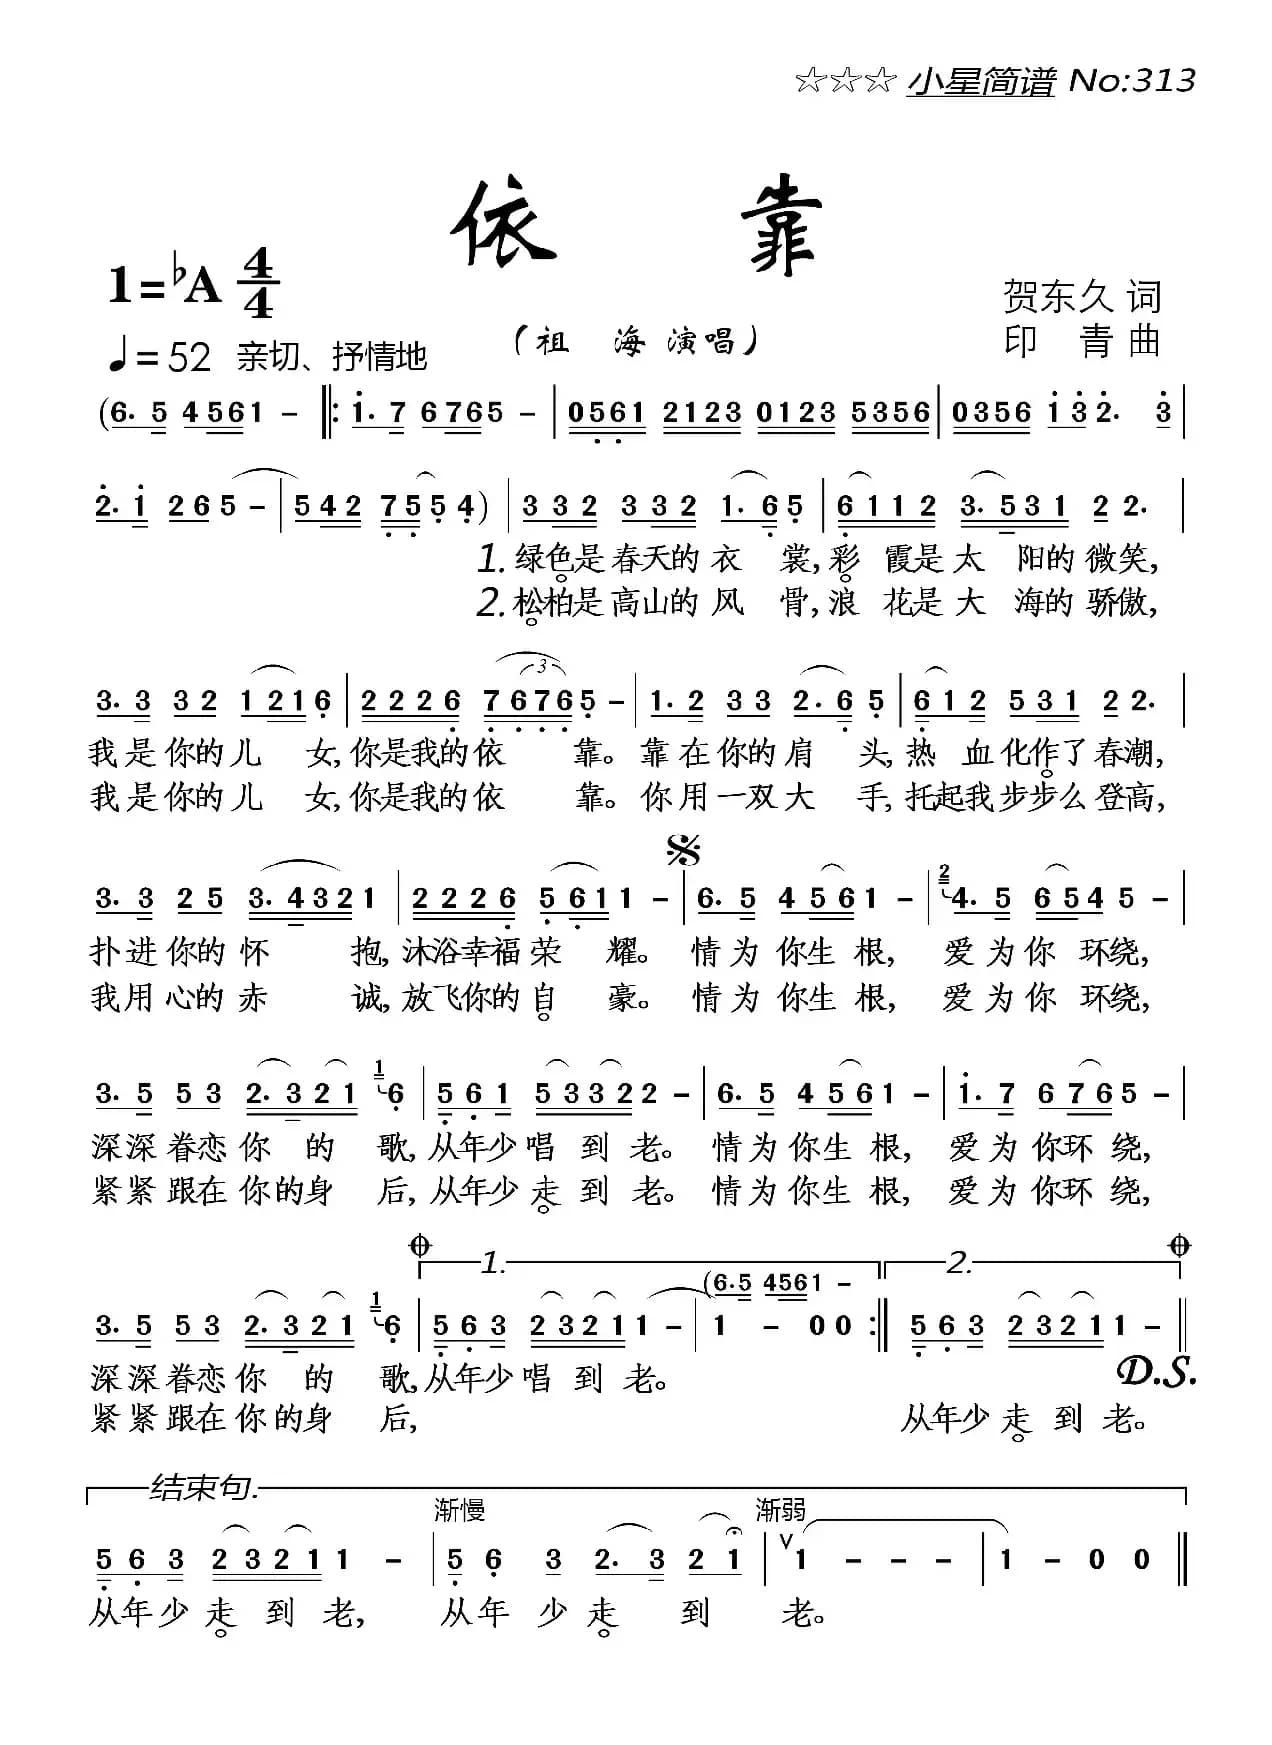 ☆☆☆ 小星简谱 No:313
依 靠
1=♭A 4/4
贺东久 词
♩=52 亲切、抒情地
（祖 海 演唱）
印 青 曲
(6. 5 4 5 6 1 - ‖: 1. 7 6 7 6 5 - | 0 5 6 1 2 1 2 3 0 1 2 3 5 3 5 6 | 0 3 5 6 1 3 2. 3 |
2. 1 2 6 5 - | 5 4 2 7 5 5 4 ) | 3 3 2 3 3 2 1. 6 5 | 6 1 1 2 3. 5 3 1 2 2. |
1. 绿色是春天的 衣 裳, 彩 霞是 太 阳的 微笑,
2. 松柏是高山的 风 骨, 浪 花是 大 海的 骄傲,
3. 3 3 2 1 2 1 6 | 2 2 2 6 7 6 7 6 5 - | 1. 2 3 3 2. 6 5 | 6 1 2 5 3 1 2 2. |
3
我 是 你的 儿 女, 你是我的 依 靠。 靠 在 你的 肩 头, 热 血化作了 春潮,
我 是 你的 儿 女, 你是我的 依 靠。 你 用 一双 大 手, 托起我步步么 登高,
3. 3 2 5 3. 4 3 2 1 | 2 2 2 6 5 6 1 1 - | 6. 5 4 5 6 1 - | 2 4. 5 6 5 4 5 - |
扑 进 你的 怀 抱, 沐浴幸福 荣 耀。 情 为 你生 根, 爱 为 你 环绕,
我 用 心的 赤 诚, 放飞你的 自 豪。 情 为 你生 根, 爱 为 你 环绕,
3. 5 5 3 2. 3 2 1 1 6 | 5 6 1 5 3 3 2 2 - | 6. 5 4 5 6 1 - | 1. 7 6 7 6 5 - |
深 深 眷恋 你 的 歌, 从年少 唱 到 老。 情 为 你生 根, 爱 为 你环 绕,
紧 紧 跟在 你 的身 后, 从年少 走 到 老。 情 为 你生 根, 爱 为 你环 绕,
1. 2.
(6. 5 4 5 6 1 -
3. 5 5 3 2. 3 2 1 1 6 | 5 6 3 2 3 2 1 1 - | 1 - 0 0 :‖ 5 6 3 2 3 2 1 1 - ‖
D.S.
深 深 眷恋 你 的 歌, 从年少 唱 到 老。
紧 紧 跟在 你 的身 后, 从年少 走 到 老。
结束句.
渐慢 渐弱
5 6 3 2 3 2 1 1 - | 5 6 3 2. 3 2 1 | ∨1 - - - | 1 - 0 0 ‖
从年 少 走 到 老, 从 年 少 走 到 老。